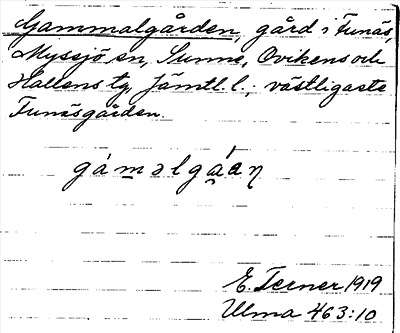 Gammalgården, gård i Funäs,
Myssjö sn, Sunne, Ovikens och
Hallens tg, Jämtl. l.; västligaste
Funäsgården.
gáməlgáan
E. Terner 1919
Ulma 463:10